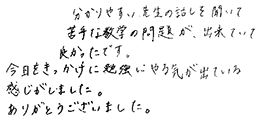 分かりやすい先生の話しを聞いて
苦手な数学の問題が、出来ていて
良かったです。
今日をきっかけに勉強にやる気が出ている
感じがしました。
ありがとうございました。